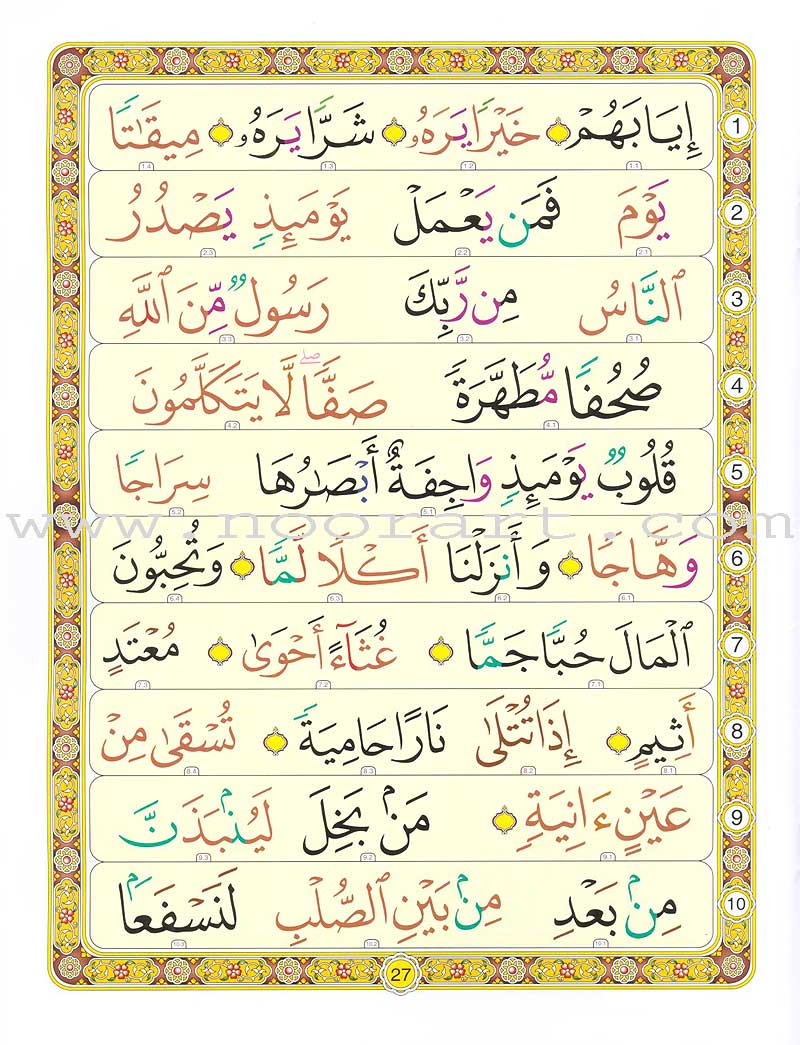 إِيَابَهُمْ خَيْرًا يَرَهُۥ شَرًّا يَرَهُۥ مِيقَٰتًا 1
1.1 1.2 1.3 1.4
يَوْمَ فَمَن يَعْمَلْ يَوْمَئِذٍ يَصْدُرُ 2
2.1 2.2 2.3
ٱلنَّاسُ مِن رَّبِّكَ رَسُولٌ مِّنَ ٱللَّهِ 3
3.1 3.2 3.3
صُحُفًا مُّطَهَّرَةً صَفًّا ۖ لَّا يَتَكَلَّمُونَ 4
4.1 4.2
قُلُوبٌ يَوْمَئِذٍ وَاجِفَةٌ أَبْصَٰرُهَا سِرَاجًا 5
5.1 5.2
www.noorart.com
وَهَّاجًا وَأَنزَلْنَا أَكْلًا لَّمًّا وَتُحِبُّونَ 6
6.1 6.2 6.3 6.4
ٱلْمَالَ حُبًّا جَمًّا غُثَآءً أَحْوَىٰ مُعْتَدٍ 7
7.1 7.2 7.3
أَثِيمٍ إِذَا تُتْلَىٰ نَارًا حَامِيَةً تُسْقَىٰ مِنْ 8
8.1 8.2 8.3 8.4
عَيْنٍ ءَانِيَةٍ مَنۢ بَخِلَ لَيُنۢبَذَنَّ 9
9.1 9.2 9.3
مِنۢ بَعْدِ مِنۢ بَيْنِ ٱلصُّلْبِ لَنَسْفَعَۢا 10
10.1 10.2 10.3
27